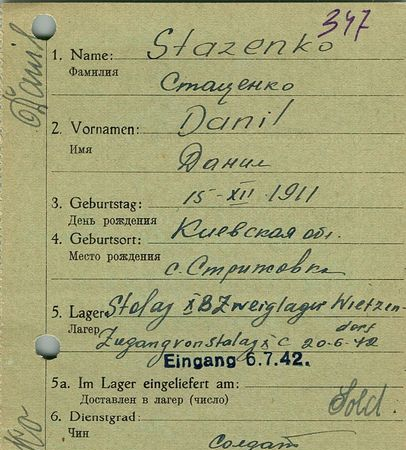 347
1. Name: Stazenko
Фамилия
Стаценко
2. Vornamen: Danil
Имя
Данил
3. Geburtstag: 15-XII-1911
День рождения
4. Geburtsort: Киевская обл.
Место рождения
с. Стрижовка
5. Lager: Stalag X B Zweiglager Wietzen-
dorf
Лагерь
Zugang von Stalag X C 20-6-42
Eingang 6.7.42.
5a. Im Lager eingeliefert am:
Доставлен в лагерь (число)
Sold.
6. Dienstgrad:
Чин
солдат
Danil